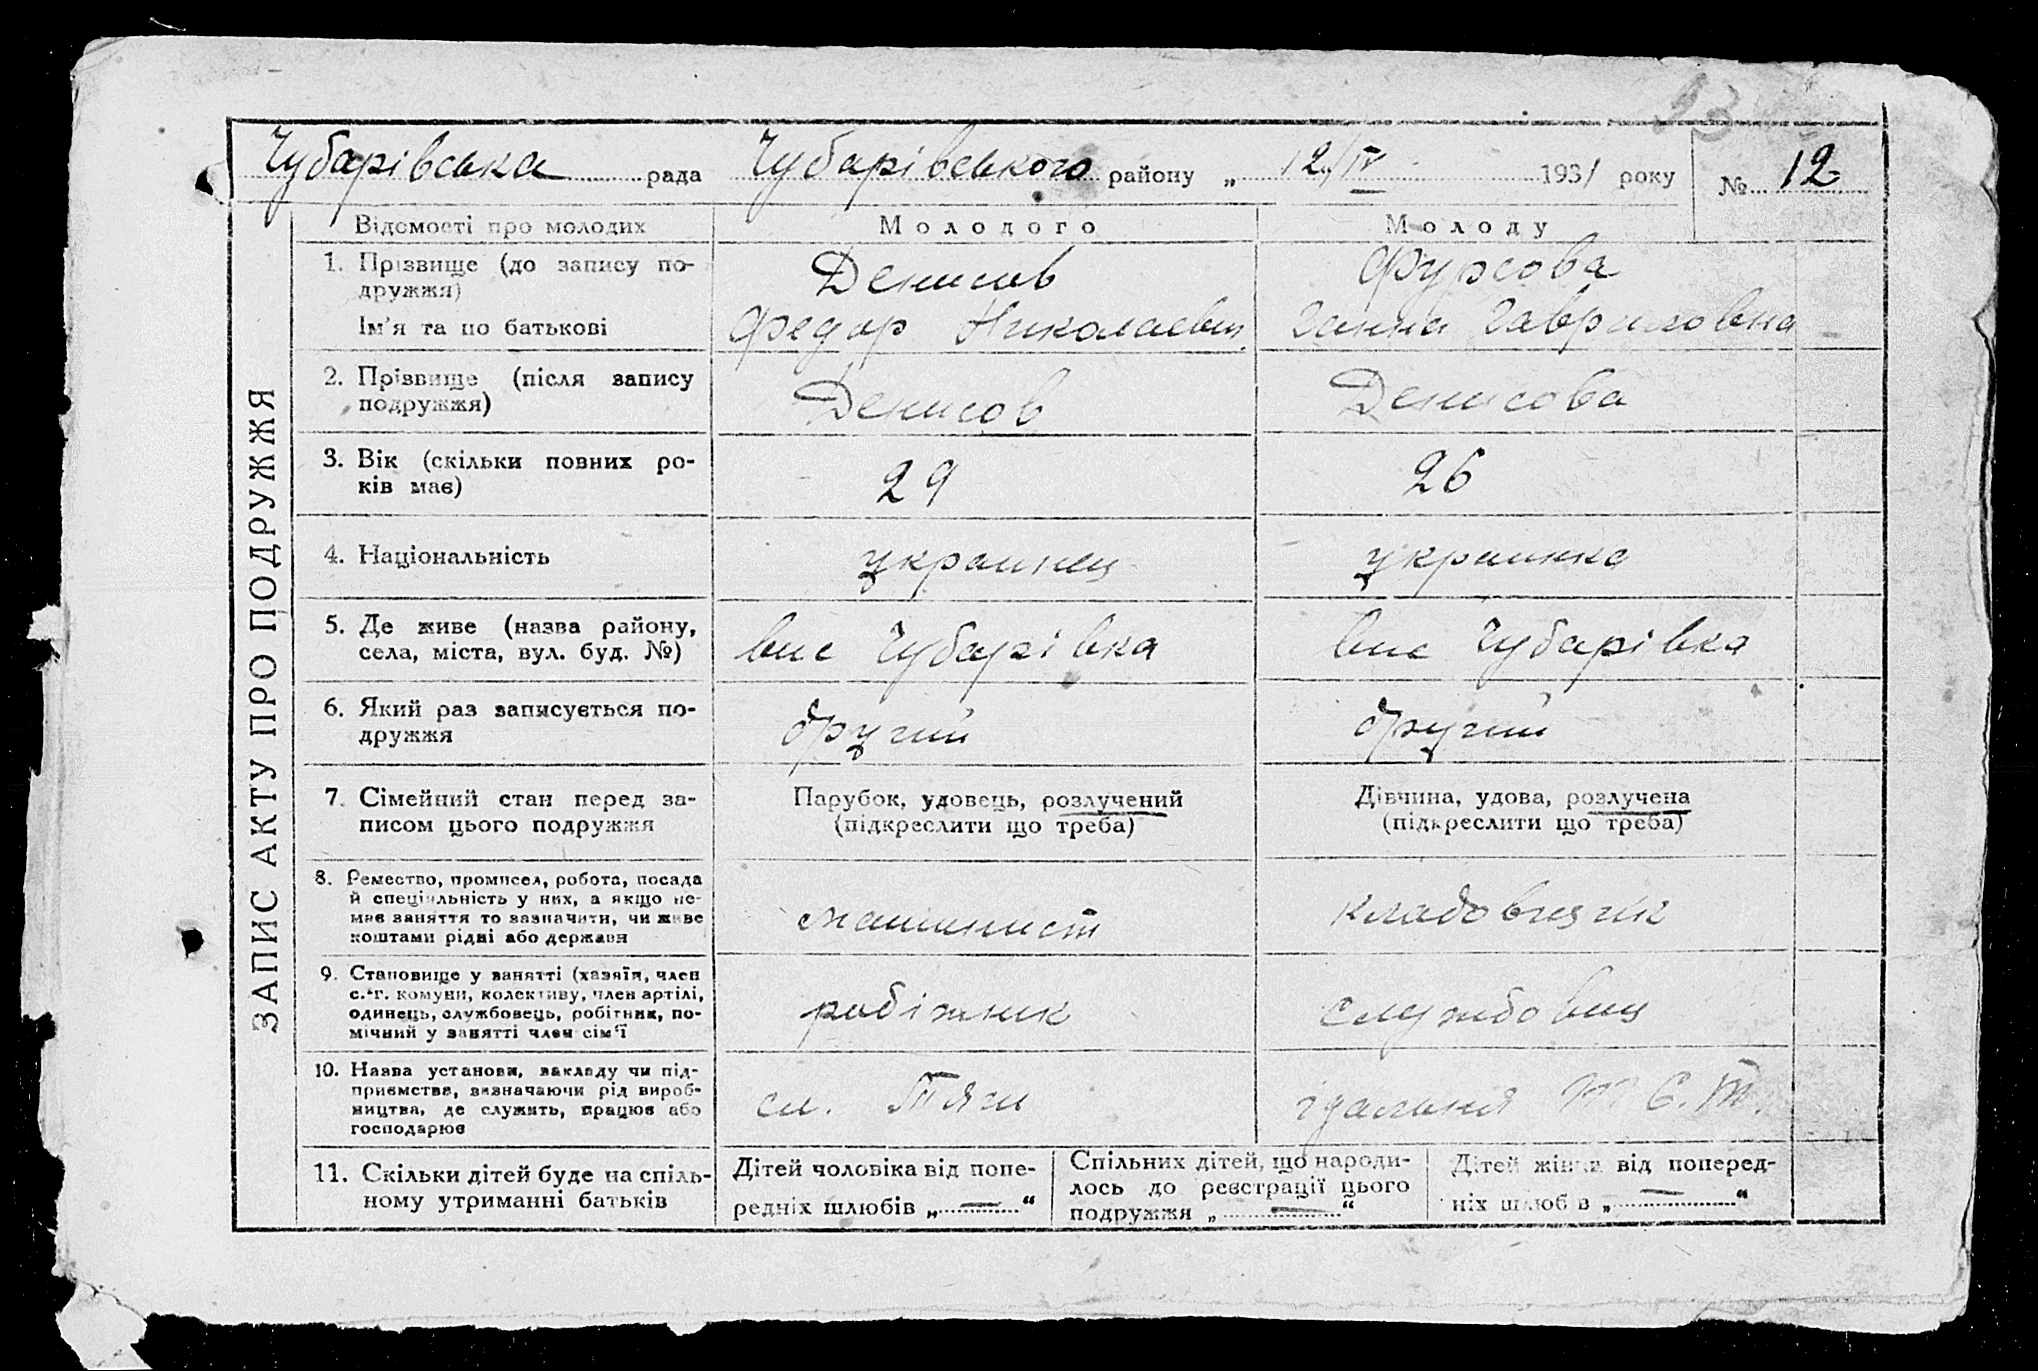 13
Чубарівська рада Чубарівського району „ 12/IV 1931 року № 12
ЗАПИС АКТУ ПРО ПОДРУЖЖЯ
Відомості про молодих
Молодого
Молоду
1. Прізвище (до запису по-
дружжя)
Ім'я та по батькові
Денисов
Федор Николаевич
Фурсова
Ганна Гавриловна
2. Прізвище (після запису
подружжя)
Денисов
Денисова
3. Вік (скільки повних ро-
ків має)
29
26
4. Національність
украинец
украинка
5. Де живе (назва району,
села, міста, вул. буд. №)
вис Чубарівка
вис Чубарівка
6. Який раз записується по-
дружжя
другий
другий
7. Сімейний стан перед за-
писом цього подружжя
Парубок, удовець, розлучений
(підкреслити що треба)
Дівчина, удова, розлучена
(підкреслити що треба)
8. Ремество, промисел, робота, посада
й спеціяльність у них, а якщо не-
має заняття то зазначити, чи живе
коштами рідні або держави
машинист
кладовщик
9. Становище у занятті (хазяїн, член
с.-г. комуни, колективу, член артілі,
одинець, службовець, робітник, по-
мічний у занятті член сім'ї
робітник
службовец
10. Назва установи, закладу чи під-
приємства, визначаючи рід вироб-
ництва, де служить, працює або
господарює
сл. Тяги
їдальня
11. Скільки дітей буде на спіль-
ному утриманні батьків
Дітей чоловіка від попе-
редніх шлюбів „ — “
Спільних дітей, що народи-
лось до реєстрації цього
подружжя „ — “
Дітей жінки від поперед-
ніх шлюбів „ — “